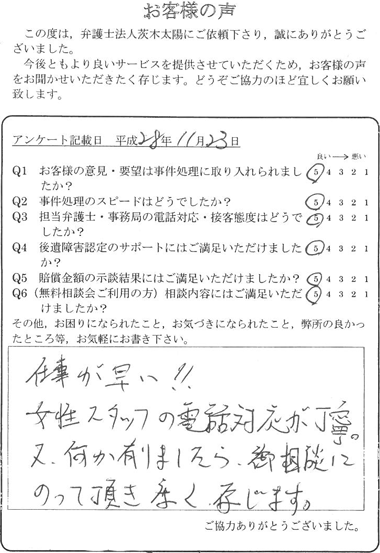 お客様の声
この度は，弁護士法人茨木太陽にご依頼下さり，誠にありがとうご
ざいました。
今後ともより良いサービスを提供させていただくため，お客様の声
をお聞かせいただきたく存じます。どうぞご協力のほど宜しくお願い
致します。
アンケート記載日　平成28年11月23日
良い→悪い
Q1　お客様の意見・要望は事件処理に取り入れられまし　5 4 3 2 1
たか？
Q2　事件処理のスピードはどうでしたか？　5 4 3 2 1
Q3　担当弁護士・事務局の電話対応・接客態度はどうで　5 4 3 2 1
したか？
Q4　後遺障害認定のサポートにはご満足いただけました　5 4 3 2 1
か？
Q5　賠償金額の示談結果にはご満足いただけましたか？　5 4 3 2 1
Q6（無料相談会ご利用の方）相談内容にはご満足いただ　5 4 3 2 1
けましたか？
その他，お困りになられたこと，お気づきになられたこと，弊所の良かっ
たところ等，お気軽にお書き下さい。
仕事が早い!!
女性スタッフの電話対応が丁寧。
又、何か有りましたら、御相談に
のって頂き度く存じます。
ご協力ありがとうございました。